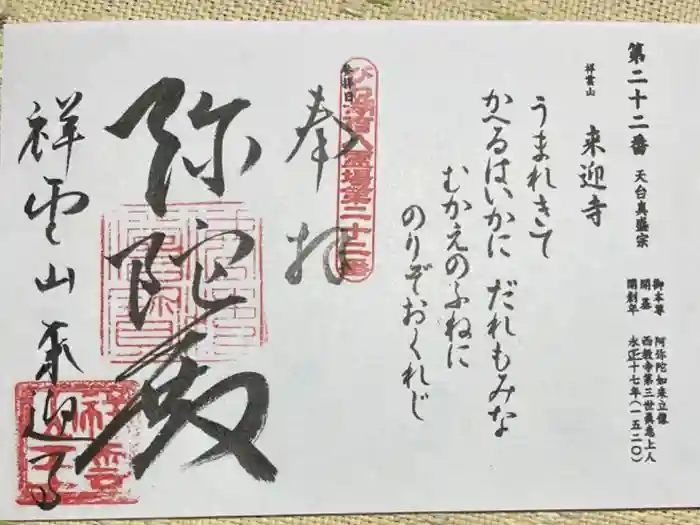 第二十二番 天台真盛宗
祥雲山 来迎寺
御本尊 阿弥陀如来立像
開基 西教寺第三世真恵上人
開創年 永正十七年(一五二〇)
うまれきて
かへるはいかに だれもみな
むかえのふねに
のりぞおくれじ
参拝日
びわ湖百八霊場第二十二番
奉拝
弥陀殿
祥雲山来迎寺